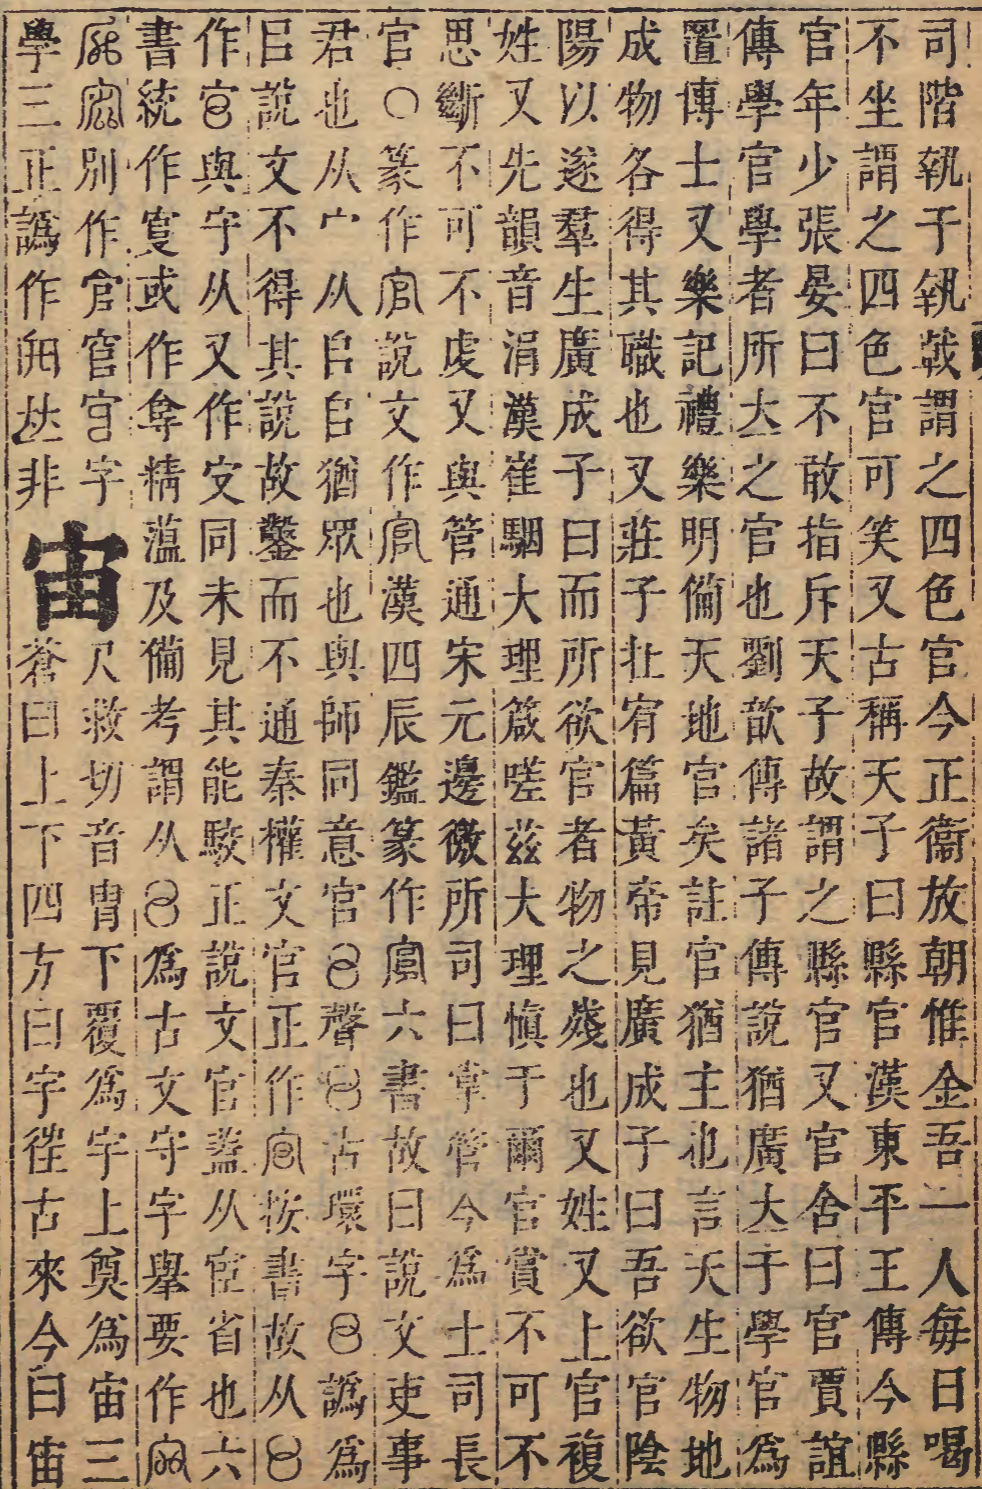 司階執子執戟謂之四色官今正衙放朝惟金吾一人每日喝
不坐謂之四色官可笑又古稱天子曰縣官漢東平王傳今縣
官年少張晏曰不敢指斥天子故謂之縣官又官舍曰官賈誼
傳學官學者所大之官也劉歆傳諸子傳說猶廣大于學官為
置博士又樂記禮樂明備天地官矣註官猶主也言天生物地
成物各得其職也又莊子在宥篇黃帝見廣成子曰吾欲官陰
陽以遂羣生廣成子曰而所欲官者物之殘也又姓又上官複
姓又先韻音涓漢崔駰大理箴嗟茲大理慎于爾官賞不可不
思斷不可不虔又與管通宋元邊徼所司曰掌管今為土司長
官○篆作官說文作官漢四辰鑑篆作官六書故曰說文吏事
君也从宀从𠂤𠂤猶眾也與師同意官聲古環字譌為
㠯說文不得其說故鑿而不通秦權文官正作按書故从
作官與守从又作安同未見其能駮正說文官蓋从官省也六
書統作或作精薀及備考謂从為古文守字舉要作
別作官官字
學三正譌作𠀤非
宙
尺救切音冑下覆為宇上奠為宙三
蒼曰上下四方曰宇徃古來今曰宙